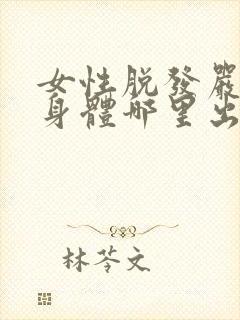 女性脱發嚴
身體哪里出
林苓文